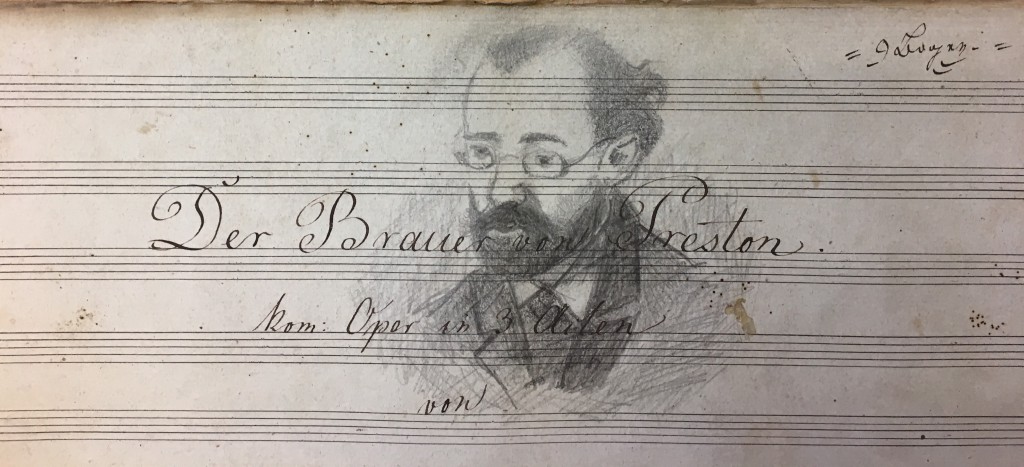 = 9 Bogen. =
Der Brauer von Preston.
kom: Oper in 3 Akten
von